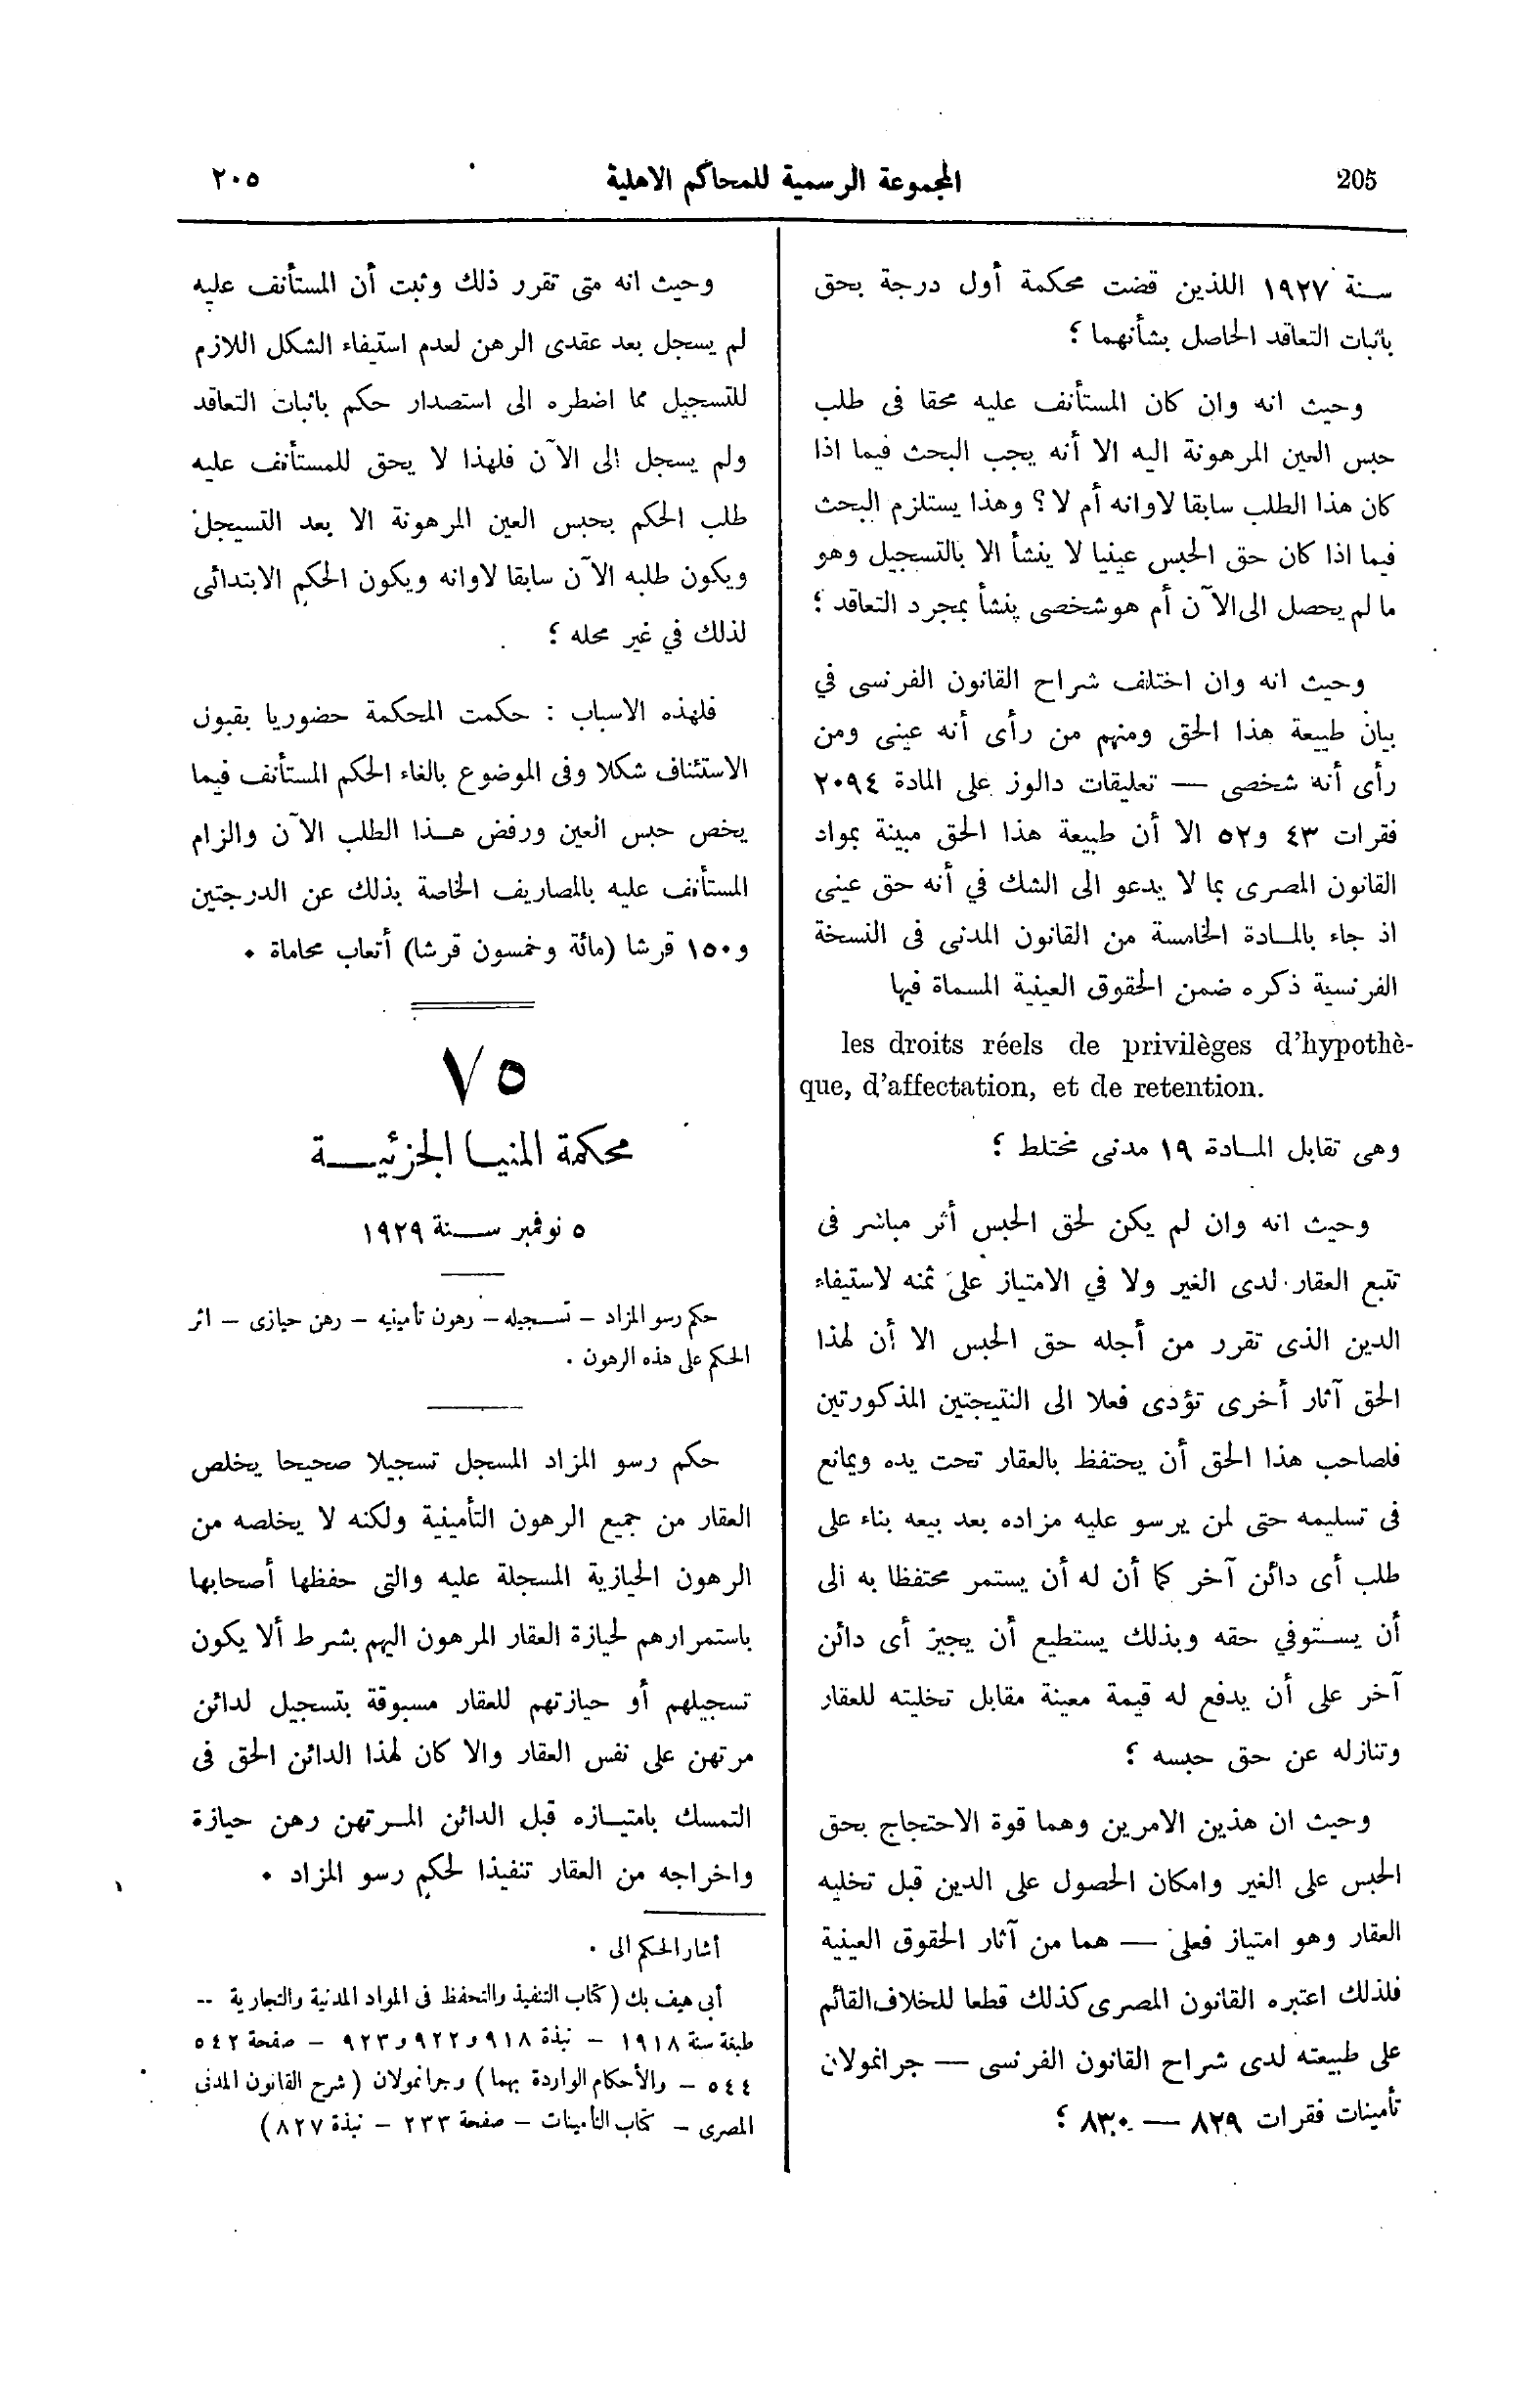 205 المجموعة الرسمية للمحاكم الاهلية ٢٠٥
سنة ١٩٢٧ اللذين قضت محكمة أول درجة بحق
باثبات التعاقد الحاصل بشأنهما ؛
وحيث انه وان كان المستأنف عليه محقا فى طلب
حبس العين المرهونة اليه الا أنه يجب البحث فيما اذا
كان هذا الطلب سابقا لاوانه أم لا ؟ وهذا يستلزم البحث
فيما اذا كان حق الحبس عينيا لا ينشأ الا بالتسجيل وهو
ما لم يحصل الى الآن أم هو شخصى ينشأ بمجرد التعاقد ؛
وحيث انه وان اختلف شراح القانون الفرنسى في
بيان طبيعة هذا الحق ومنهم من رأى أنه عينى ومن
رأى أنه شخصى — تعليقات دالوز على المادة ٢٠٩٤
فقرات ٤٣ و٥٢ الا أن طبيعة هذا الحق مبينة بمواد
القانون المصرى بما لا يدعو الى الشك في أنه حق عينى
اذ جاء بالمادة الخامسة من القانون المدنى فى النسخة
الفرنسية ذكره ضمن الحقوق العينية المسماة فيها
les droits réels de privilèges d'hypothè-
que, d'affectation, et de retention.
وهى تقابل المادة ١٩ مدنى مختلط ؛
وحيث انه وان لم يكن لحق الحبس أثر مباشر فى
تتبع العقار لدى الغير ولا في الامتياز على ثمنه لاستيفاء
الدين الذى تقرر من أجله حق الحبس الا أن لهذا
الحق آثار أخرى تؤدى فعلا الى النتيجتين المذكورتين
فلصاحب هذا الحق أن يحتفظ بالعقار تحت يده ويمانع
فى تسليمه حتى لمن يرسو عليه مزاده بعد بيعه بناء على
طلب أى دائن آخر كما أن له أن يستمر محتفظا به الى
أن يستوفي حقه وبذلك يستطيع أن يجبر أى دائن
آخر على أن يدفع له قيمة معينة مقابل تخليته للعقار
وتنازله عن حق حبسه ؛
وحيث ان هذين الامرين وهما قوة الاحتجاج بحق
الحبس على الغير وامكان الحصول على الدين قبل تخليه
العقار وهو امتياز فعلى — هما من آثار الحقوق العينية
فلذلك اعتبره القانون المصرى كذلك قطعا للخلاف القائم
على طبيعته لدى شراح القانون الفرنسى — جرانمولان
تأمينات فقرات ٨٢٩ — ٨٣٠ ؛
وحيث انه متى تقرر ذلك وثبت أن المستأنف عليه
لم يسجل بعد عقدى الرهن لعدم استيفاء الشكل اللازم
للتسجيل مما اضطره الى استصدار حكم باثبات التعاقد
ولم يسجل الى الآن فلهذا لا يحق للمستأنف عليه
طلب الحكم بحبس العين المرهونة الا بعد التسيجل
ويكون طلبه الآن سابقا لاوانه ويكون الحكم الابتدائى
لذلك في غير محله ؛
فلهذه الاسباب : حكمت المحكمة حضوريا بقبول
الاستئناف شكلا وفى الموضوع بالغاء الحكم المستأنف فيما
يخص حبس العين ورفض هذا الطلب الآن والزام
المستأنف عليه بالمصاريف الخاصة بذلك عن الدرجتين
و١٥٠ قرشا (مائة وخمسون قرشا) أتعاب محاماة ٠
٧٥
محكمة المنيا الجزئية
٥ نوفمبر سنة ١٩٢٩
حكم رسو المزاد – تسجيله – رهون تأمينيه – رهن حيازى – اثر
الحكم على هذه الرهون ٠
حكم رسو المزاد المسجل تسجيلا صحيحا يخلص
العقار من جميع الرهون التأمينية ولكنه لا يخلصه من
الرهون الحيازية المسجلة عليه والتى حفظها أصحابها
باستمرارهم لحيازة العقار المرهون اليهم بشرط ألا يكون
تسجيلهم أو حيازتهم للعقار مسبوقة بتسجيل لدائن
مرتهن على نفس العقار والا كان لهذا الدائن الحق فى
التمسك بامتيازه قبل الدائن المرتهن رهن حيازة
واخراجه من العقار تنفيذا لحكم رسو المزاد ٠
أشار الحكم الى ٠
أبى هيف بك (كتاب التنفيذ والتحفظ فى المواد المدنية والتجارية --
طبعة سنة ١٩١٨ – نبذة ٩١٨ و٩٢٢ و٩٢٣ – صفحة ٥٤٢
٥٤٤ – والأحكام الواردة بهما) وجرانمولان (شرح القانون المدنى
المصرى – كتاب التأمينات – صفحة ٢٣٣ – نبذة ٨٢٧)